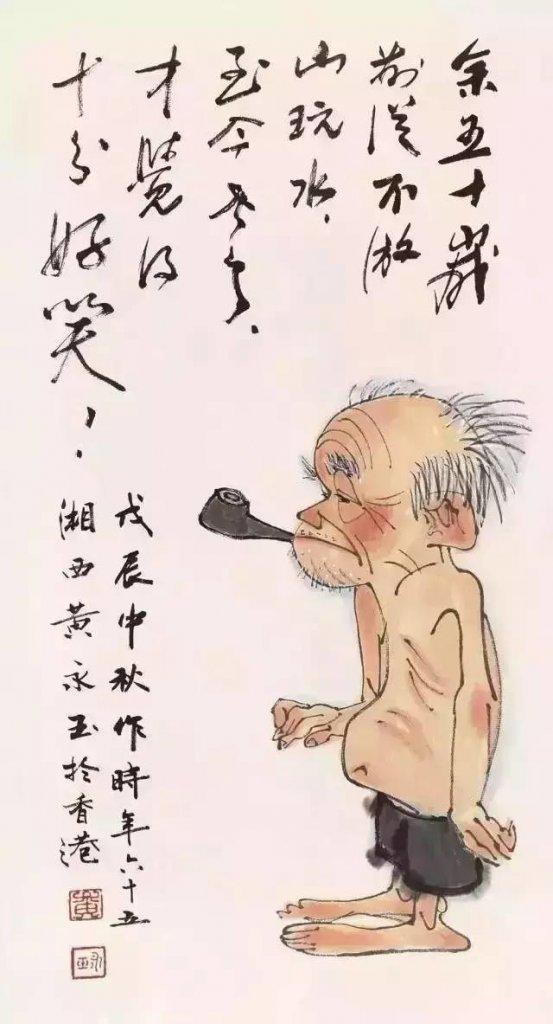 余五十歲
前從不游
山玩水，
至今老矣，
才覺得
十分好笑，，
戊辰中秋作時年六十五
湘西黃永玉於香港
黃
永玉